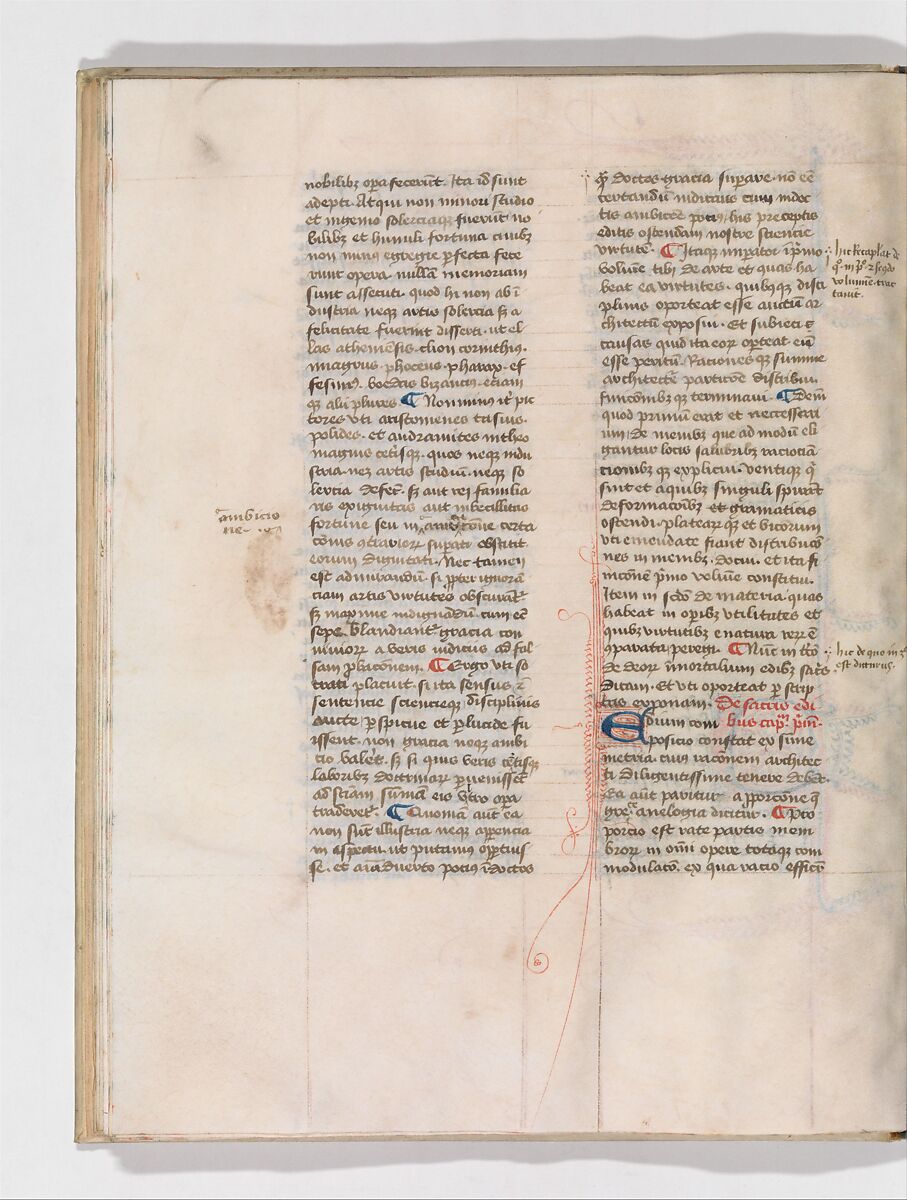 nobilibꝫ oꝑa fecerūt. Ita id sunt
adepti. Atqui non minori studio
et ingenio solerciaqꝫ fuerūt no
bilibꝫ et humili fortuna ciuibꝫ
non minꝰ egregie ꝑfecta fece
runt opera nullā memoriam
sunt assecuti quod hi non ab ī
dustria neqꝫ artis solercia sꝫ a
felicitate fuerint disserti. ut el
las atheniēsis. chion corinthiꝰ.
miagrus. phoceus. pharax. ef
fesinꝰ. boedas bizantiꝰ. eciam
qꝫ alii plures ¶ Non minꝰ itꝰ pic
tores vti aristomenes tasius.
polides. et andramites nitheo
magnus cetisqꝫ. quos neqꝫ indu
stria. neꝫ artis studiū. neqꝫ so
lercia defet̄. sꝫ aut rei familia
ris exiguitas aut imbecillitas
fortune seu in certa
eorum dignitati. Nec tamen
est admirandū si ꝓpter ignorā
ciam artis virtutes obscurant̄
sꝫ maxime indignādū cum eē
sepe blandiant̄ gracia con
a veris iudiciis ad fal
sam ꝓbacōnem. ¶ Ergo vti so
crati placuit. si ita sensus ꝛ
sentencie scienceqꝫ disciplinis
aucte ꝑspicue et ꝑlucide fu
issent. non gracia neqꝫ ambi
cio valeret. sꝫ si quis veris certisqꝫ
laboribꝫ doctrinarꝝ ꝑuenissēt
ad sciam sūmā eis vltro opa
traderet̄. ¶ Quoniā aut̄ ea
non sūt illustria neqꝫ apencia
in aspectu. ut putamus oportuis
se. et aīaduerto pociꝰ īdoctos
ambicio
ne
qꝫ doctos gracia suꝑare. nō eē
certandū iudicans cum indoc
tis ambicōe pociꝰ his preceptis
editis ostendam nostre sciencie
virtutē. ¶ Itaqꝫ imꝑator ī pͥmo
volūie tibi de arte et quas ha
beat ea virtutes. quibusqꝫ disci
plinis oporteat esse auctū ar
chitectū exposui. Et subieci
causas quid ita eorꝝ oporteat eū
esse peritū. Racionesqꝫ summe
architectē particōe distribui.
finicōnibꝫqꝫ terminaui. ¶ Deīn
quod primū erat et necessari
um de menibꝫ que ad modū eli
gantur locis salubribꝫ raciocinā
cionibꝫqꝫ explicui. ventiqꝫ qͥ
sint et a quibꝫ singuli spirāt
deformacōibꝫ et gramaticis
ostendi. platearꝝqꝫ et vicorum
vti emendate fiant distribucō
nes in menibꝫ. docui. et ita fi
nicōne pͥmo volūie constitui.
Item in scdō de materia quas
habeat in oꝑibꝫ vtilitates et
quibꝫ virtutibꝫ e natura rerꝝ ē
cōparata. peregi. ¶ Nūc in tͨio
de deorꝝ imortalium edibꝫ sacrīs
dicam. Et vti oporteat ꝑ scrip
tas exponam. De sacris edi
Edium com bus capͫ. pͥm.
posicio constat ex sime
metria. cuiꝰ racōnem architec
ti diligentissime tenere debēt.
Ea aūt paritur a ꝓporcōne q̄
grece analogia dicitur. ¶ Pro
porcio est rate partis mem
brorꝝ in omi opere totiqꝫ com
modulacō. ex qua racio efficit̄
hic recapl̄at de
qͦ. in pͦ. ꝛ scdo
volumīe trac
tauit.
hic de quo in 3ͦ
est dicturus.